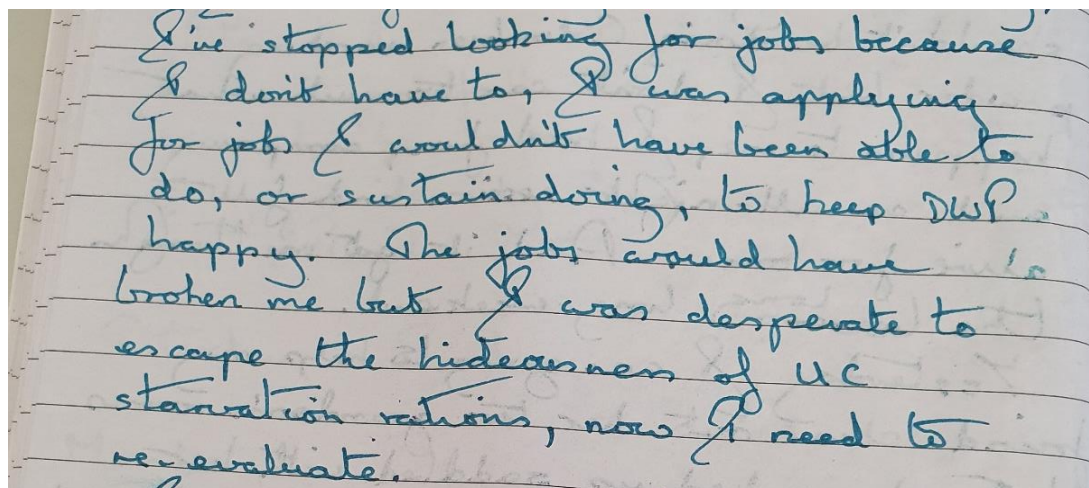 I've stopped looking for jobs because
I don't have to, I was applying
for jobs I wouldn't have been able to
do, or sustain doing, to keep DWP
happy. The jobs would have
broken me but I was desperate to
escape the hideousness of UC
starvation rations, now I need to
re-evaluate.